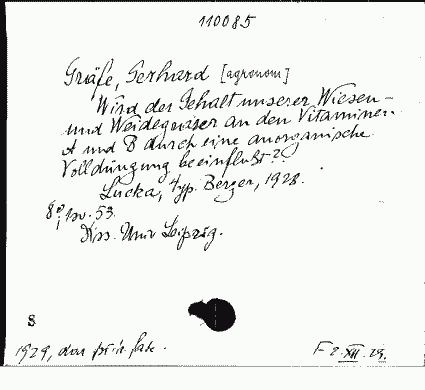 110085
Gräfe, Gerhard [agronom]
Wird der Gehalt unserer Wiesen-
und Weidegräser an den Vitaminen
A und B durch eine anorganische
Volldüngung beeinflußt?
Lucka, typ. Berger, 1928.
8°, 53.
Diss. Univ Leipzig.
S
1929, dar
F 2. XII. 29.